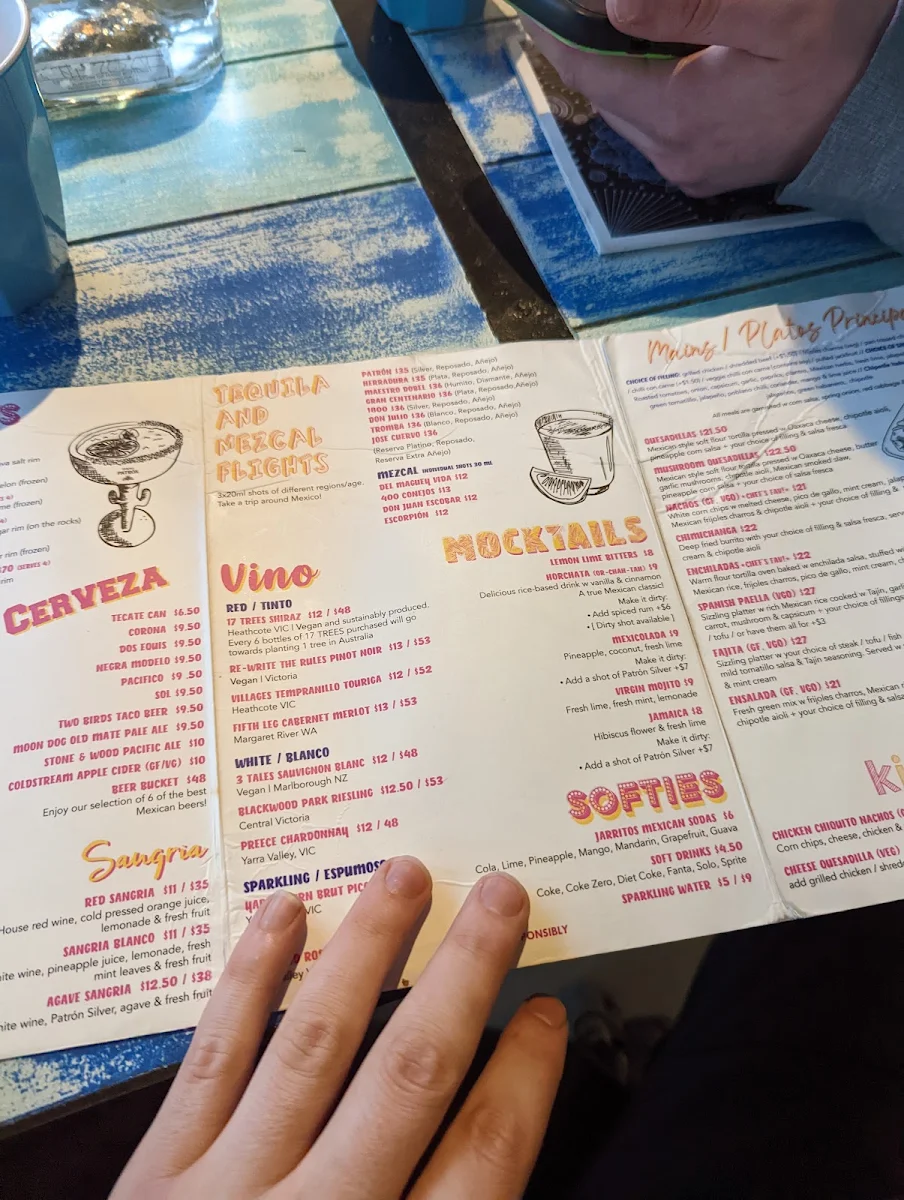 S
va salt rim
elon (frozen)
me (frozen)
ar rim (on the rocks)
r rim (frozen)
$70 (SERVES 4)
rim
CERVEZA
TECATE CAN $6.50
CORONA $9.50
DOS EQUIS $9.50
NEGRA MODELO $9.50
PACIFICO $9.50
SOL $9.50
TWO BIRDS TACO BEER $9.50
MOON DOG OLD MATE PALE ALE $9.50
STONE & WOOD PACIFIC ALE $10
COLDSTREAM APPLE CIDER (GF/VG) $10
BEER BUCKET $48
Enjoy our selection of 6 of the best
Mexican beers!
Sangria
RED SANGRIA $11 / $35
House red wine, cold pressed orange juice,
lemonade & fresh fruit
SANGRIA BLANCO $11 / $35
ite wine, pineapple juice, lemonade, fresh
mint leaves & fresh fruit
AGAVE SANGRIA $12.50 / $38
hite wine, Patrón Silver, agave & fresh fruit
TEQUILA
AND
MEZCAL
FLIGHTS
3x20ml shots of different regions/age.
Take a trip around Mexico!
PATRÓN $35 (Silver, Reposado, Añejo)
HERRADURA $35 (Plata, Reposado, Añejo)
MAESTRO DOBEL $36 (Humito, Diamante, Añejo)
GRAN CENTENARIO $36 (Plata, Reposado, Añejo)
1800 $36 (Silver, Reposado, Añejo)
DON JULIO $36 (Blanco, Reposado, Añejo)
TROMBA $36 (Blanco, Reposado, Añejo)
JOSE CUERVO $36
(Reserva Platino, Reposado,
Reserva Extra Añejo)
MEZCAL INDIVIDUAL SHOTS 30 ML
DEL MAGUEY VIDA $12
400 CONEJOS $12
DON JUAN ESCOBAR $12
ESCORPIÓN $12
Vino
RED / TINTO
17 TREES SHIRAZ $12 / $48
Heathcote VIC | Vegan and sustainably produced.
Every 6 bottles of 17 TREES purchased will go
towards planting 1 tree in Australia
RE-WRITE THE RULES PINOT NOIR $13 / $53
Vegan | Victoria
VILLAGES TEMPRANILLO TOURIGA $12 / $52
Heathcote VIC
FIFTH LEG CABERNET MERLOT $13 / $53
Margaret River WA
WHITE / BLANCO
3 TALES SAUVIGNON BLANC $12 / $48
Vegan | Marlborough NZ
BLACKWOOD PARK RIESLING $12.50 / $53
Central Victoria
PREECE CHARDONNAY $12 / 48
Yarra Valley, VIC
SPARKLING / ESPUMOS
BRUT
VIC
PONSIBLY
MOCKTAILS
LEMON LIME BITTERS $8
HORCHATA (OR-CHAH-TAH) $9
Delicious rice-based drink w vanilla & cinnamon
A true Mexican classic!
Make it dirty:
• Add spiced rum +$6
• [ Dirty shot available ]
MEXICOLADA $9
Pineapple, coconut, fresh lime
Make it dirty:
• Add a shot of Patrón Silver +$7
VIRGIN MOJITO $9
Fresh lime, fresh mint, lemonade
JAMAICA $8
Hibiscus flower & fresh lime
Make it dirty:
• Add a shot of Patrón Silver +$7
SOFTIES
JARRITOS MEXICAN SODAS $6
Cola, Lime, Pineapple, Mango, Mandarin, Grapefruit, Guava
SOFT DRINKS $4.50
Coke, Coke Zero, Diet Coke, Fanta, Solo, Sprite
SPARKLING WATER $5 / $9
Mains / Platos Principa
CHOICE OF FILLING: grilled chicken / shredded beef (+$1.50) /
/ chilli con carne (+$1.50) / veggie chilli con carne
All meals are garnished w corn salsa, spring onion, red cabbage
QUESADILLAS $21.50
Mexican style soft flour tortilla pressed w Oaxaca cheese, chipotle aioli,
pineapple corn salsa + your choice of filling & salsa fresca
MUSHROOM QUESADILLAS $22.50
Mexican style soft flour tortilla pressed w Oaxaca cheese, butter
garlic mushrooms, chipotle aioli, Mexican smoked slaw,
pineapple corn salsa + salsa fresca
NACHOS (GF, VGO) •CHEF'S FAV!• $21
White corn chips w melted cheese, pico de gallo, mint cream, jala
Mexican frijoles charros & chipotle aioli + your choice of filling &
CHIMICHANGA $22
Deep fried burrito with your choice of filling & salsa fresca, serve
cream & chipotle aioli
ENCHILADAS •CHEF'S FAV!• $22
Warm flour tortilla oven baked w enchilada salsa, stuffed w
Mexican rice, frijoles charros, pico de gallo, mint cream, ch
SPANISH PAELLA (VGO) $27
Sizzling platter w rich Mexican rice cooked w Tajin, garlic
carrot, mushroom & capsicum + your choice of fillings
/ tofu / or have them all for +$3
FAJITA (GF, VGO) $27
Sizzling platter w your choice of steak / tofu / fish
mild tomatillo salsa & Tajin seasoning. Served w
& mint cream
ENSALADA (GF, VGO) $21
Fresh green mix w frijoles charros, Mexican
chipotle aioli + your choice of filling & salsa
ki
CHICKEN CHIQUITO NACHOS (G
Corn chips, cheese, chicken &
CHEESE QUESADILLA (VEG)
add grilled chicken / shred